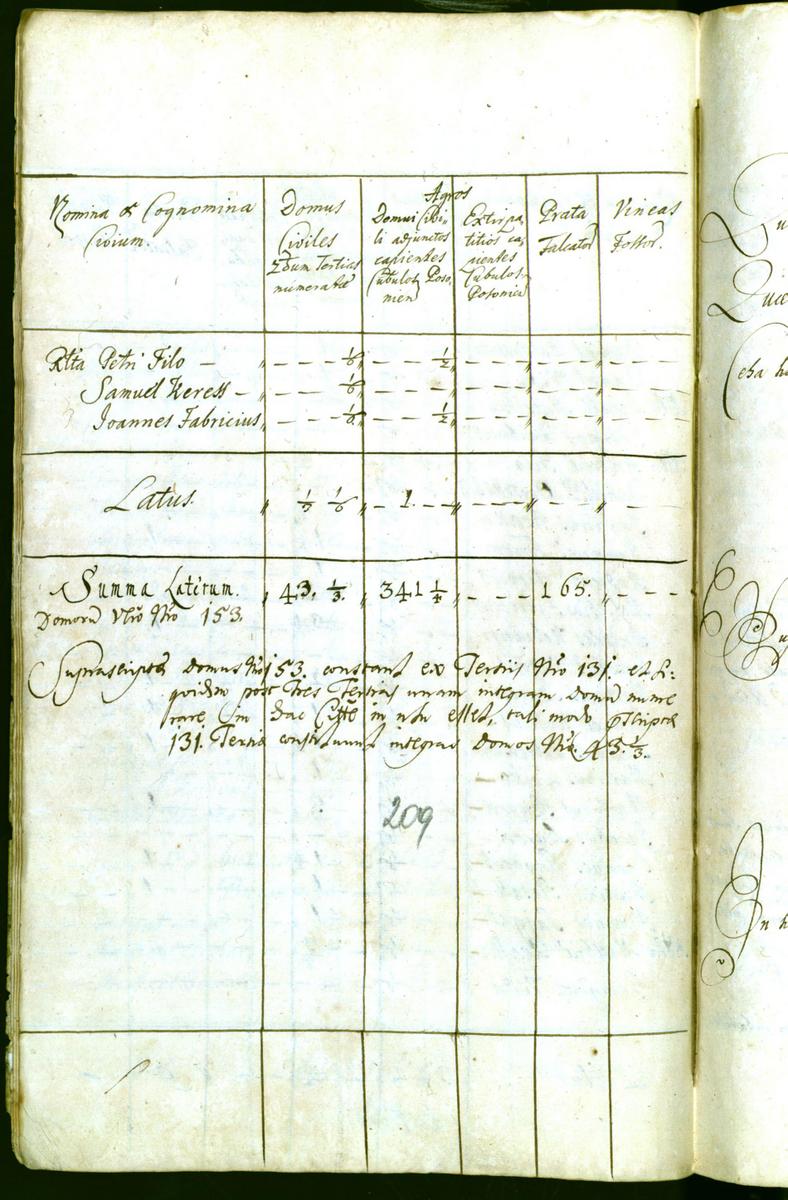 Nomina & Cognomina
Civium.
Domus
Civiles
numeratae
Agros
Domui Civi-
li adjunctos
capientes
Cubulos Poso-
nien
Extirpa-
titios ca-
pientes
Cubulos
Posonien
Prata
Falcator
Vineas
Fossor.
Rlta Petri Filo — „ - - - 1/6 „ - - 1/2 „ - - - „ - - - „ - - -
Samuel Keress — „ - - - 1/6 „ - - - „ - - - „ - - - „ - - -
Joannes Fabricius „ - - - 1/6 „ - - 1/2 „ - - - „ - - - „ - - -
Latus. „ 1/3 1/6 „ - 1. - „ - - - „ - - - „ - -
Summa Laterum. „ 43. 1/3. „ 341 1/4 „ - - - 165. „ - - -
Domorũ Nro 153.
Suprascriptae domus Nro 153. constant ex Tertiis Nro 131. et si-
quidem post Tres Tertias unam integram domũ nume
rare in hac Citte in usu esset, tali modo pscriptae
131. Tertiae constituunt integras Domos Nro 43. 1/3.
209
Qu
Duce
Ceha h
In h